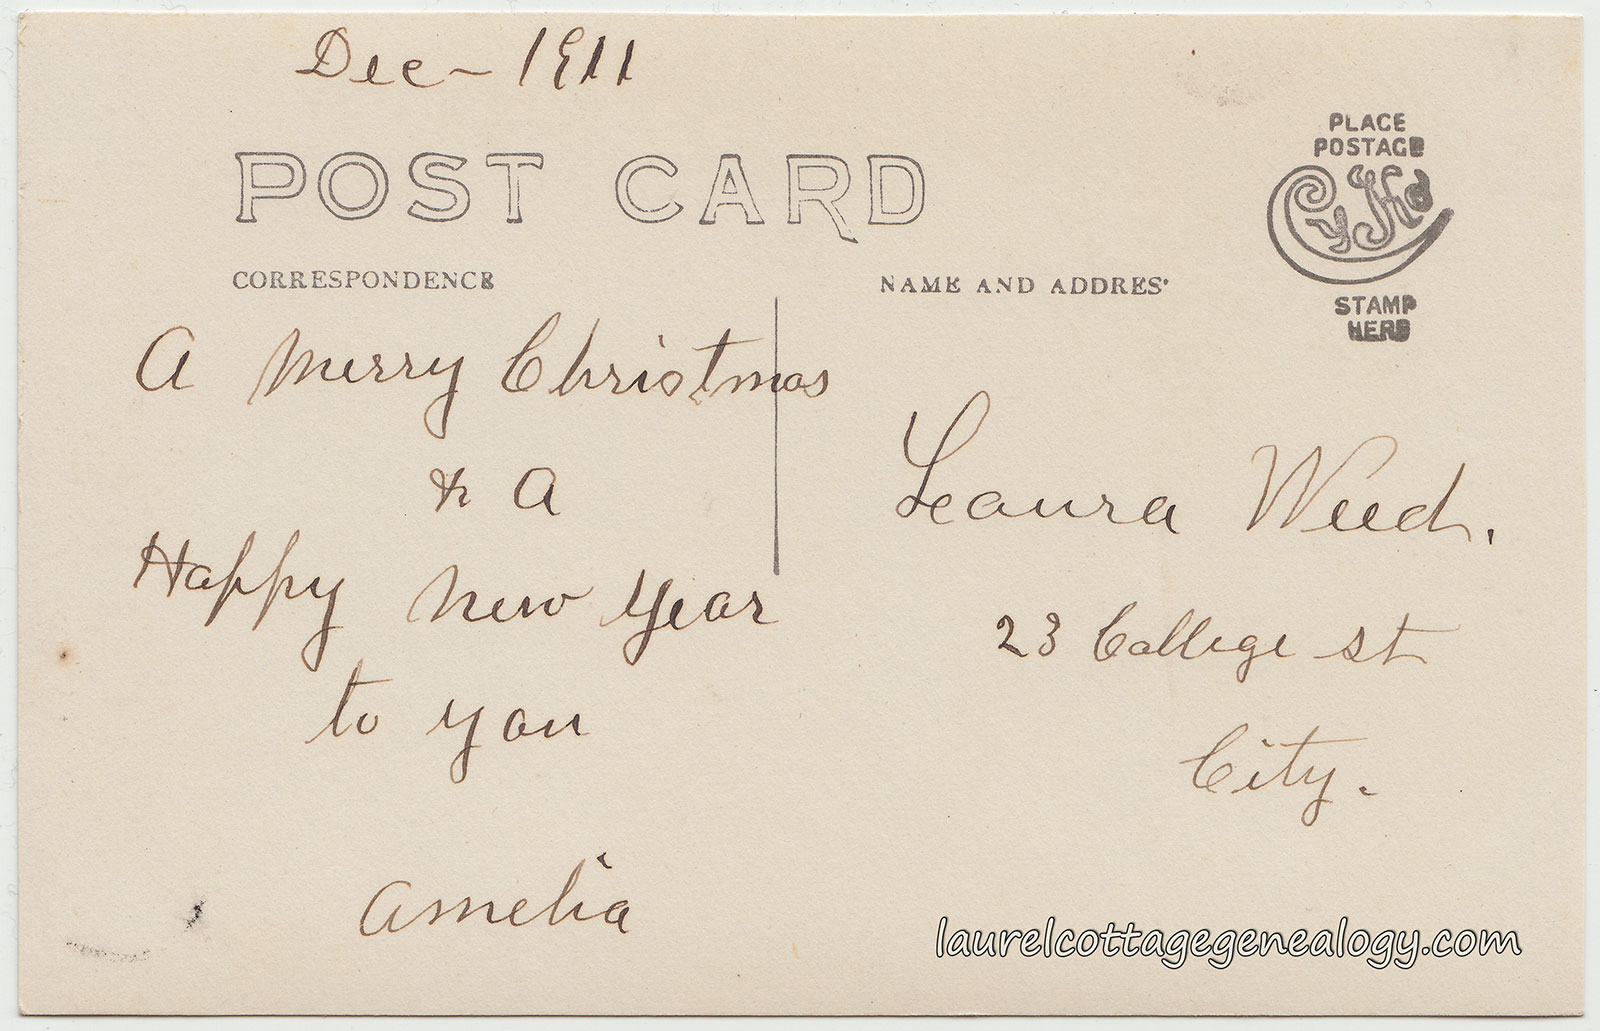 Dec - 1911
POST CARD
CORRESPONDENCE
NAME AND ADDRESS
PLACE
POSTAGE
CyKo
STAMP
HERE
A Merry Christmas
& A
Happy New Year
to you
Amelia
Leaura Weed.
23 College st
City.
laurelcottagegenealogy.com